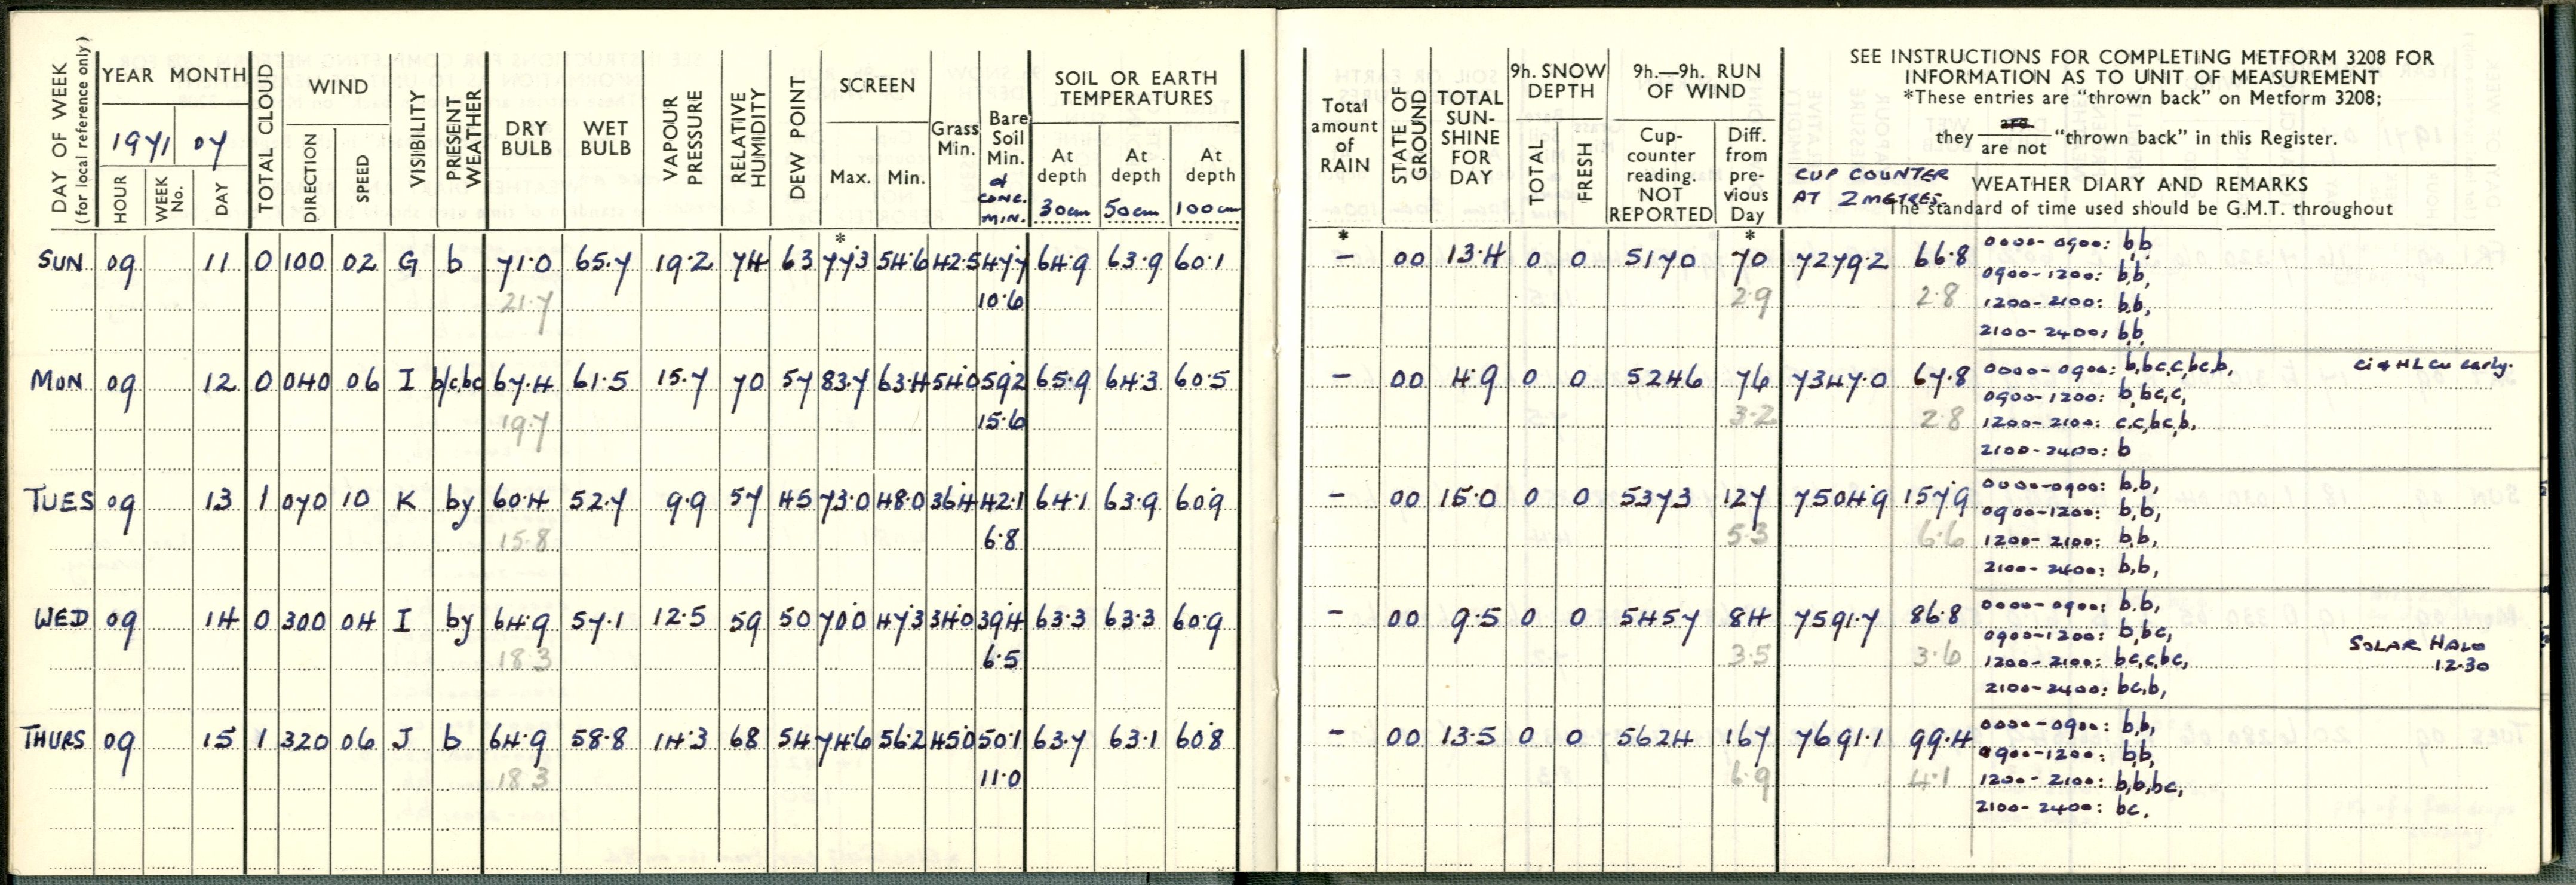 DAY OF WEEK (for local reference only)
YEAR MONTH
1971 07
HOUR WEEK No. DAY
TOTAL CLOUD
WIND
DIRECTION SPEED
VISIBILITY
PRESENT WEATHER
DRY BULB
WET BULB
VAPOUR PRESSURE
RELATIVE HUMIDITY
DEW POINT
SCREEN
Max. Min.
Grass Min.
Bare Soil Min.
& CONC. MIN.
SOIL OR EARTH TEMPERATURES
At depth 30cm
At depth 50cm
At depth 100cm
Total amount of RAIN
STATE OF GROUND
TOTAL SUN-SHINE FOR DAY
9h. SNOW DEPTH
TOTAL FRESH
9h.—9h. RUN OF WIND
Cup-counter reading. NOT REPORTED
Diff. from pre-vious Day
SEE INSTRUCTIONS FOR COMPLETING METFORM 3208 FOR
INFORMATION AS TO UNIT OF MEASUREMENT
*These entries are "thrown back" on Metform 3208;
they are / are not "thrown back" in this Register.
CUP COUNTER
AT 2 METRES
WEATHER DIARY AND REMARKS
The standard of time used should be G.M.T. throughout
* * *
SUN 09 11 0 100 02 G b 71.0 65.7 19.2 74 63 77.3 54.6 42.5 47.7 64.9 63.9 60.1 - 00 13.4 0 0 5170 70 7279.2 66.8 0000-0900: b,b
0900-1200: b,b,
21.7 10.6 2.9 2.8 1200-2100: b,b,
2100-2400: b,b
MON 09 12 0 040 06 I b/cbc 67.4 61.5 15.7 70 57 83.7 63.4 54.0 59.2 65.9 64.3 60.5 - 00 4.9 0 0 5246 76 7347.0 67.8 0000-0900: b,bc,c,bc,b, Ci & HL Cu early.
0900-1200: b,bc,c,
19.7 15.6 3.2 2.8 1200-2100: c,c,bc,b,
2100-2400: b
TUES 09 13 1 070 10 K by 60.4 52.7 9.9 57 45 73.0 48.0 36.4 42.1 64.1 63.9 60.9 - 00 15.0 0 0 5373 127 7504.9 157.9 0000-0900: b,b,
0900-1200: b,b,
15.8 6.8 5.3 6.6 1200-2100: b,b,
2100-2400: b,b,
WED 09 14 0 300 04 I by 64.9 57.1 12.5 59 50 70.0 47.3 34.0 39.4 63.3 63.3 60.9 - 00 9.5 0 0 5457 84 7591.7 86.8 0000-0900: b,b,
0900-1200: b,bc, SOLAR HALO
18.3 6.5 3.5 3.6 1200-2100: bc,c,bc, 12.30
2100-2400: bc,b,
THURS 09 15 1 320 06 J b 64.9 58.8 14.3 68 54 74.6 56.2 45.0 50.1 63.7 63.1 60.8 - 00 13.5 0 0 5624 167 7691.1 99.4 0000-0900: b,b,
0900-1200: b,b,
18.3 11.0 6.9 4.1 1200-2100: b,b,bc,
2100-2400: bc.